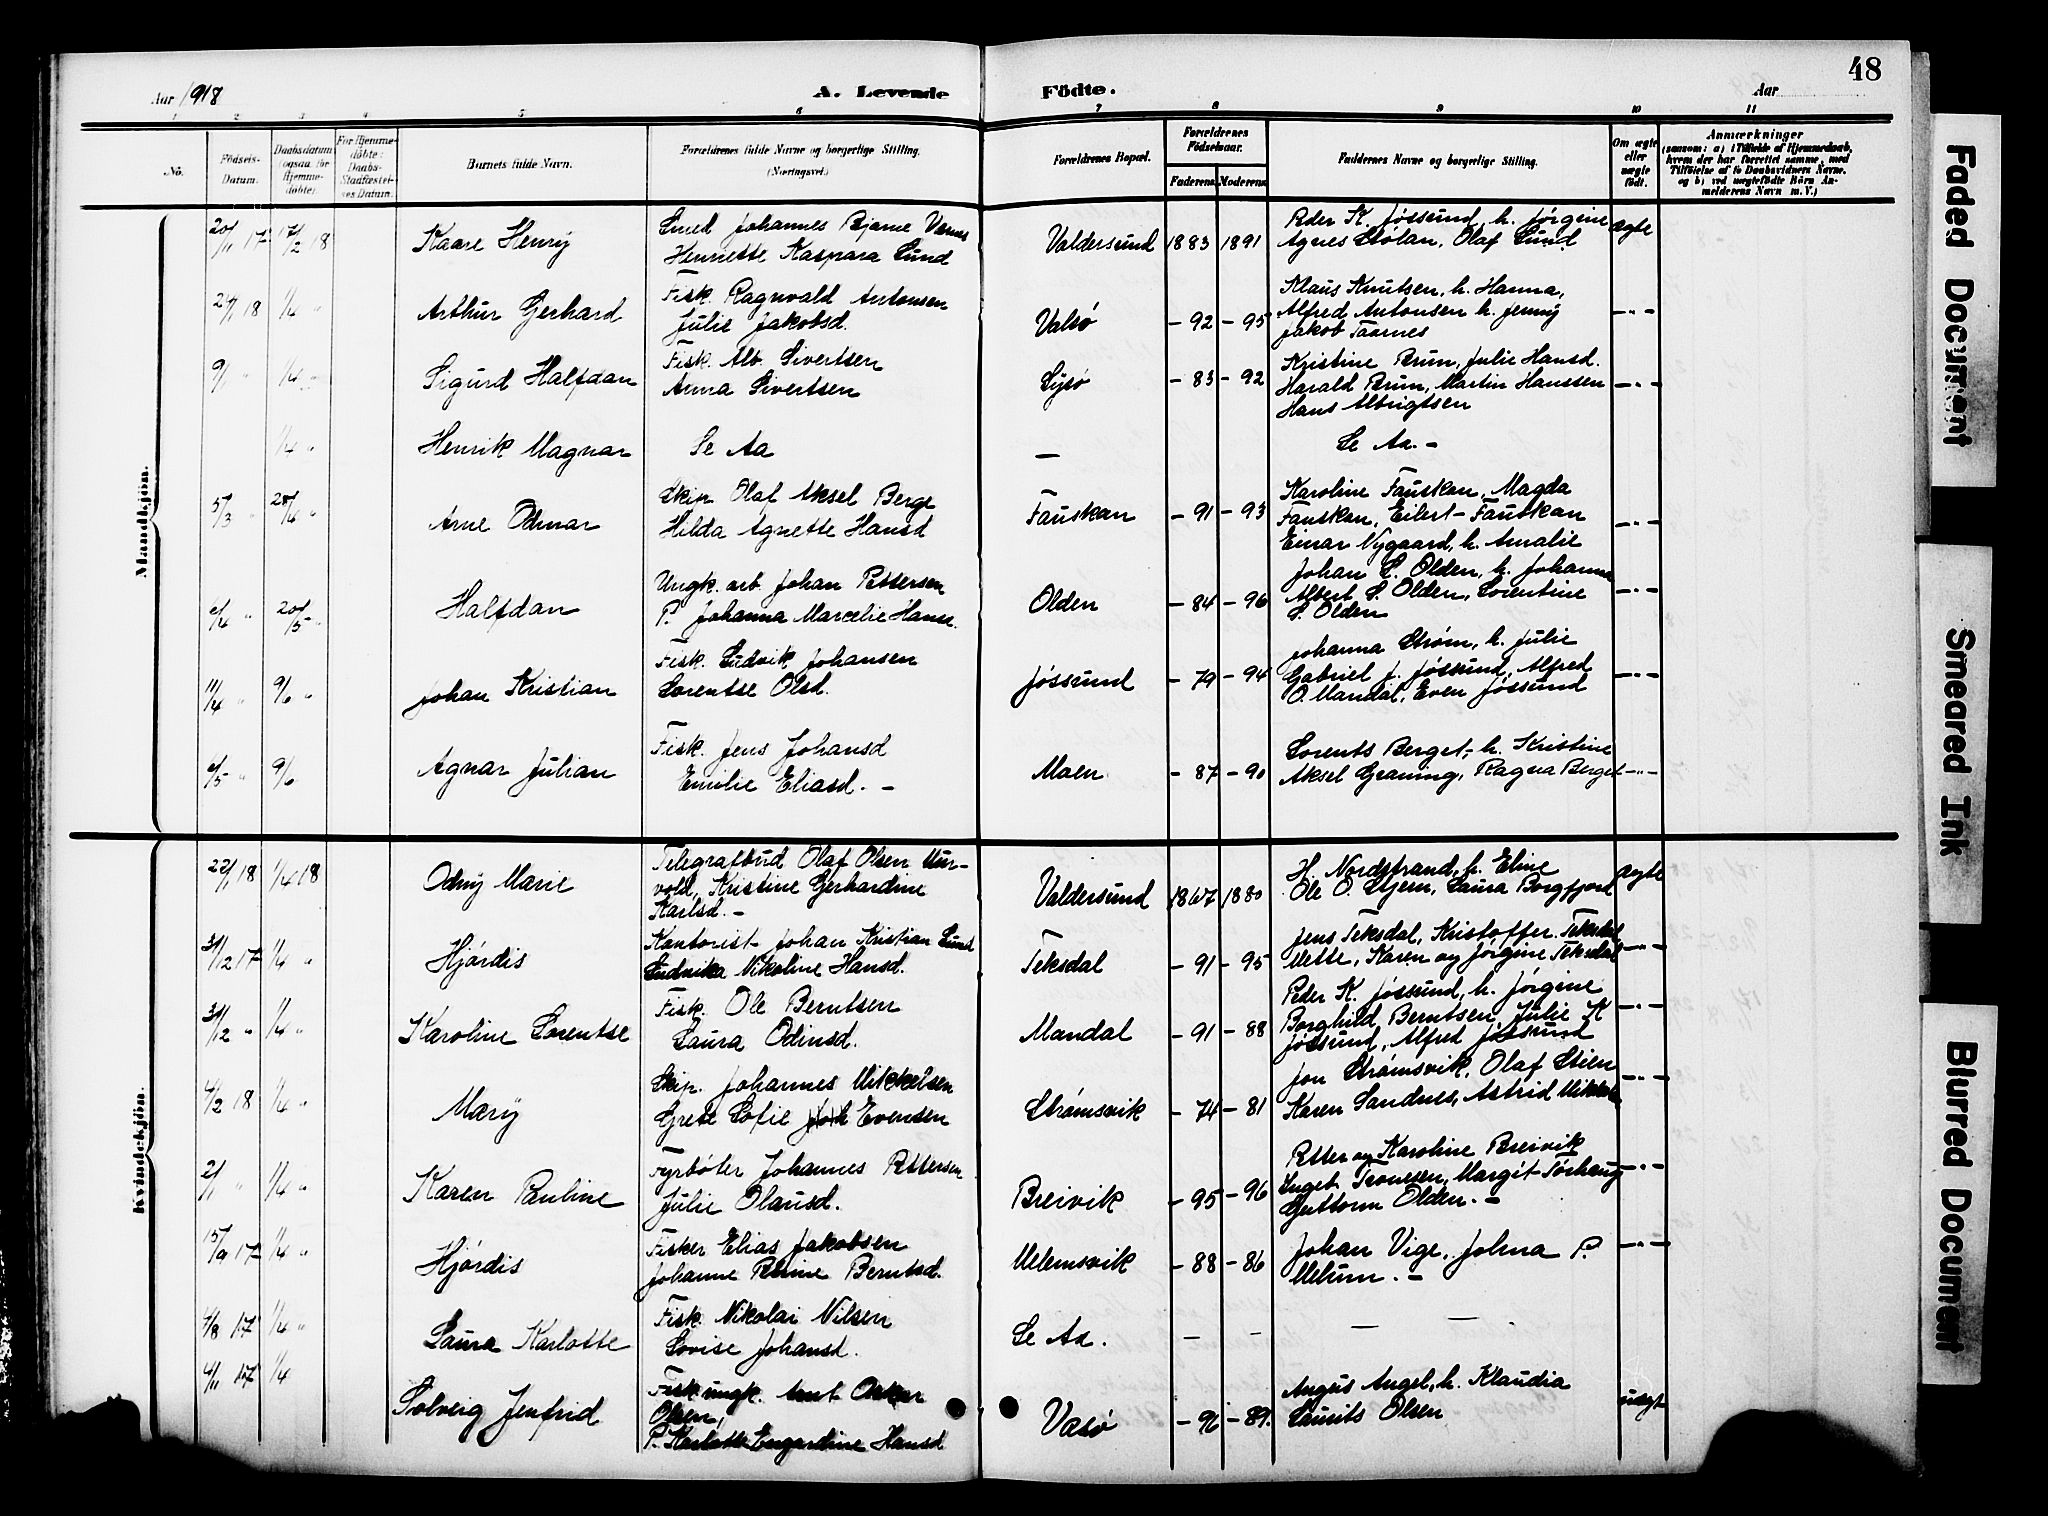 Aar 1918 A. Levende Födte. Aar 48
1 2 3 4 5 6 7 8 9 10 11
No.
Födsels-Datum.
Daabsdatum (ogsaa for Hjemme-döbte).
For Hjemme-döbte: Daabs-Stadfæstel-ses Datum.
Barnets fulde Navn.
Forældrenes fulde Navne og borgerlige Stilling. (Næringsvei.)
Forældrenes Bopæl.
Forældrenes Födselsaar. Faderens Moderens
Faddernes Navne og borgerlige Stilling.
Om ægte eller uægte født.
Anmærkninger
(saasom: a) i Tilfælde af Hjemmedaab, hvem der har forrettet samme, med Tilföielse af to Daabsvidners Navne, og b) ved uægtefödte Börn An-melderens Navn m. V.)
Mandkjön.
20/11 17 17/2 18 Kaare Henry
Smed Johannes Bjarne
Henriette Kaspara Lund
Valdersund 1883 1891
Peder K. Jøssund, h. Jørgine
Agnes Stølan, Olaf Lund
ægte
24/1 18 1/4 " Arthur Gerhard
Fisk. Ragnvald Antonsen
Julie Jakobsd.
Valsø - 92 - 95
Klaus Knutsen, h. Hanna,
Alfred Antonsen h. Jenny
Jakob Taarnes
-"-
9/1 " 1/4 " Sigurd Halfdan
Fisk. Alb. Sivertsen
Anna Sivertsen
Lysø - 83 - 92
Kristine Brun, Julie Hansd.
Harald Brun, Martin Hanssen
Hans Albrigtsen
-"-
1/4 " Henrik Magnar Se Aa — Se Aa. -
5/3 " 28/4 " Arne Odmar
Skip. Olaf Aksel Berge
Hilda Agnette Hansd
Fauskan - 91 - 93
Karoline Fauskan, Magda
Fauskan, Eilert Fauskan
Einar Nygaard, h. Amalie
-"-
/4 " 20/5 " Halfdan
Ungk. arb. Johan Pettersen
P. Johanna Marcelie Hansd.
Olden - 84 - 96
Johan S. Olden, h. Johanna
Albert S. Olden, Lorentine
S. Olden
-"-
11/4 9/6 " Johan Kristian
Fisk. Ludvik Johansen
Lorentse Olsd.
Jøssund - 79 - 94
Johanna Strøm, h. Julie
Gabriel J. Jøssund, Alfred
O. Mandal, Even Jøssund
-"-
/5 " 9/6 Agnar Julian
Fisk. Jens Johansd
Emilie Eliasd. -
Moen - 87 - 90
Lorents Berget, h. Kristine
Aksel Graning, Ragna Berget
-"-
Kvindekjön.
22/1 18 1/4 18 Odny Marie
Telegrafbud Olaf Olsen Mur-
vold, Kristine Gerhardine
Karlsd. -
Valdersund 1867 1880
H. Nordstrand, h. Eline
Ole O. Stjern, Laura Borgfjord
ægte
31/12 17 1/4 " Hjørdis
Kontorist Johan Kristian Lund
Ludvika Nikoline Hansd.
Teksdal - 91 - 95
Jens Teksdal, Kristoffer Teksdal
Mette, Karen og Jørgine Teksdal
-"-
31/12 " 1/4 " Karoline Lorentse
Fisk. Ole Berntsen
Laura Odinsd.
Mandal - 91 - 88
Peder K. Jøssund, h. Jørgine
Borghild Berntsen, Julie K
Jøssund, Alfred Jøssund
-"-
4/2 18 1/4 " Mary
Skip. Johannes Mikkelsen
Grete Sofie Evensen
Strømsvik - 74 - 81
Jon Strømsvik, Olaf Stien
Karen Sandnes, Astrid
-"-
2/1 " 1/4 " Karen Pauline
Fyrbøter Johannes Pettersen
Julie Olausd.
Breivik - 95 - 96
Petter og Karoline Breivik
Ingeb. Tronesen, Margit Tørhaug
Guttorm Olden. -
-"-
15/9 17 1/4 " Hjørdis
Fisker Elias Jakobsen
Johanne Petrine Berntsd.
Melemsvik - 88 - 86
Johan Vige, Johna P.
Melum. -
-"-
4/8 17 1/4 " Laura Karlotte
Fisk. Nikolai Nilsen
Lovise Johansd.
Se Aa. - - - -
4/11 17 1/4 Solveig Jenfrid
Fisk. ungk. Arnt Oskar
Olsen,
P. Karlotte Engardine Hansd
Vasø - 96 - 89.
Angus Angel, h. Klaudia
Laurits Olsen
uægt
Faded Document
Smeared Ink
Blurred Document